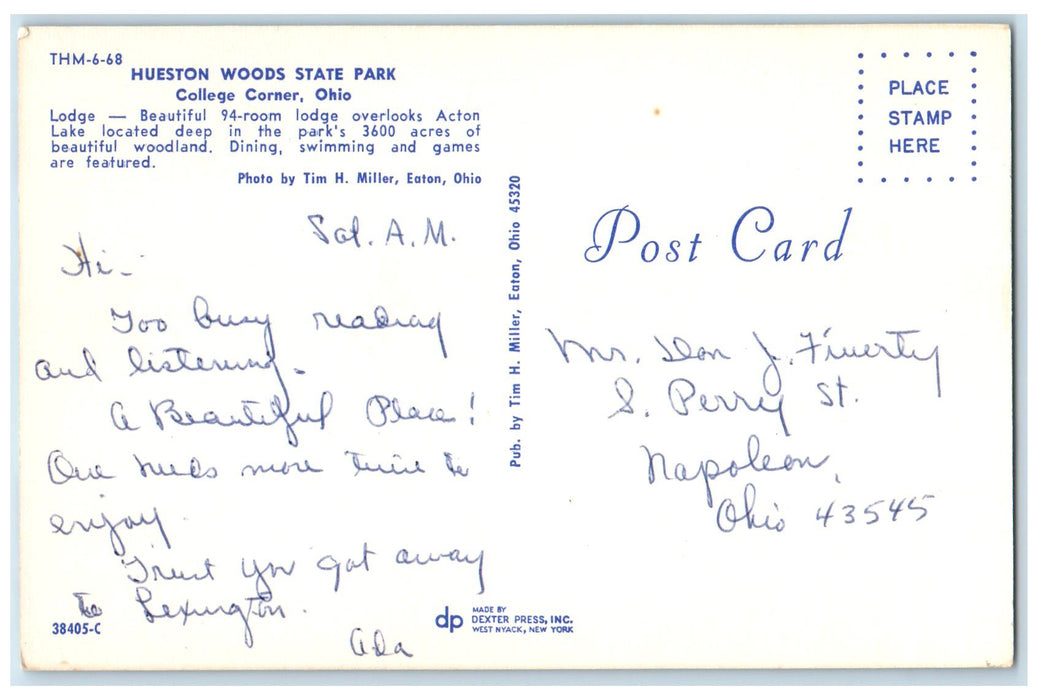 THM-6-68
HUESTON WOODS STATE PARK
College Corner, Ohio
Lodge — Beautiful 94-room lodge overlooks Acton
Lake located deep in the park's 3600 acres of
beautiful woodland. Dining, swimming and games
are featured.
Photo by Tim H. Miller, Eaton, Ohio
Sat. A.M.
Hi-
Too busy reading
and listening.
A Beautiful Place!
One needs more time to
enjoy.
Trust you got away
to Lexington.
Ada
38405-C
Pub. by Tim H. Miller, Eaton, Ohio 45320
dp MADE BY
DEXTER PRESS, INC.
WEST NYACK, NEW YORK
PLACE
STAMP
HERE
Post Card
Mrs. Don J. Finerty
S. Perry St.
Napoleon,
Ohio 43545